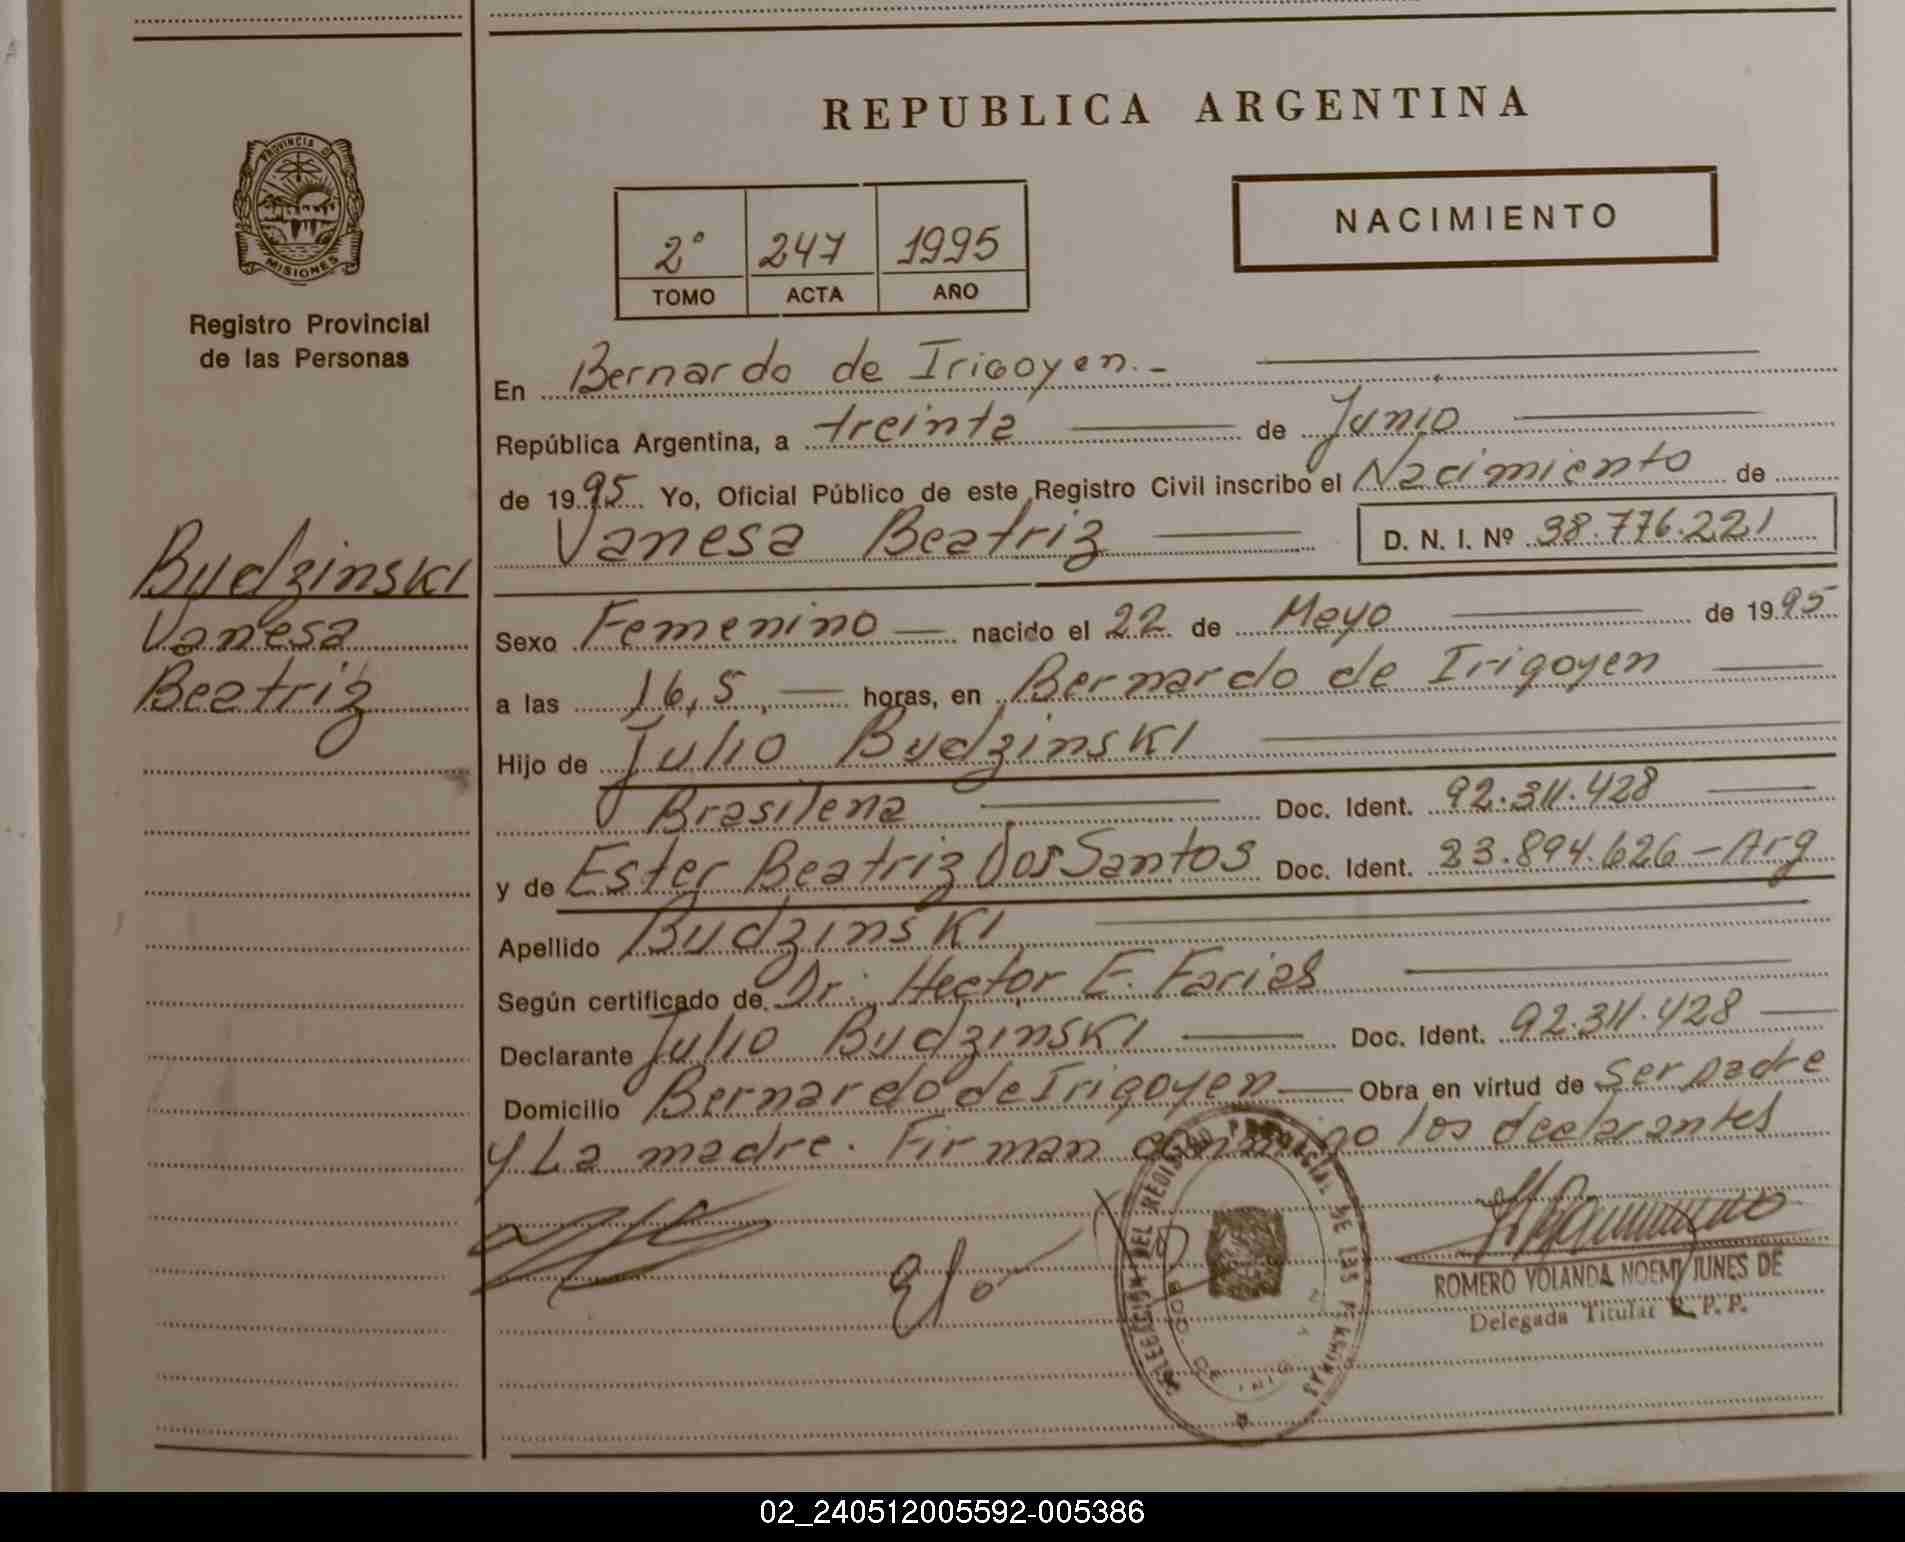 REPUBLICA ARGENTINA
PROVINCIA DE
MISIONES
Registro Provincial
de las Personas
2° 247 1995
TOMO ACTA AÑO
NACIMIENTO
En Bernardo de Irigoyen.-
República Argentina, a treinta de Junio
de 1995 Yo, Oficial Público de este Registro Civil inscribo el Nacimiento de
Vanesa Beatriz D. N. I. Nº 38.776.221
Budzinski
Vanesa
Beatriz
Sexo Femenino nacido el 22 de Mayo de 1995
a las 16,5, horas, en Bernardo de Irigoyen
Hijo de Julio Budzinski
Brasilena Doc. Ident. 92.311.428
y de Ester Beatriz Dos Santos Doc. Ident. 23.894.626 - Arg
Apellido Budzinski
Según certificado de Dr. Hector E. Farias
Declarante Julio Budzinski Doc. Ident. 92.311.428
Domicilio Bernardo de Irigoyen Obra en virtud de ser padre
y La madre. Firman conmigo los declarantes
DELEGACION DEL REGISTRO PROVINCIAL DE LAS PERSONAS
ROMERO YOLANDA NOEMI JUNES DE
Delegada Titular R. P. P.
02_240512005592-005386